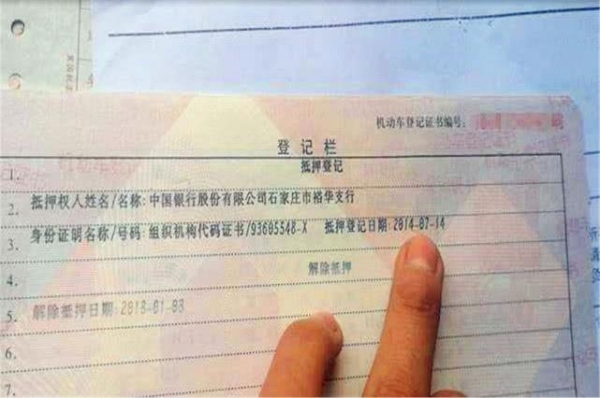 机动车登记证书编号:
登记栏
1. 抵押登记
2. 抵押权人姓名/名称:中国银行股份有限公司石家庄市裕华支行
3. 身份证明名称/号码:组织机构代码证书/93605548-X 抵押登记日期:2014-07-14
4. 解除抵押
5. 解除抵押日期:2018-01-03
6.
7.